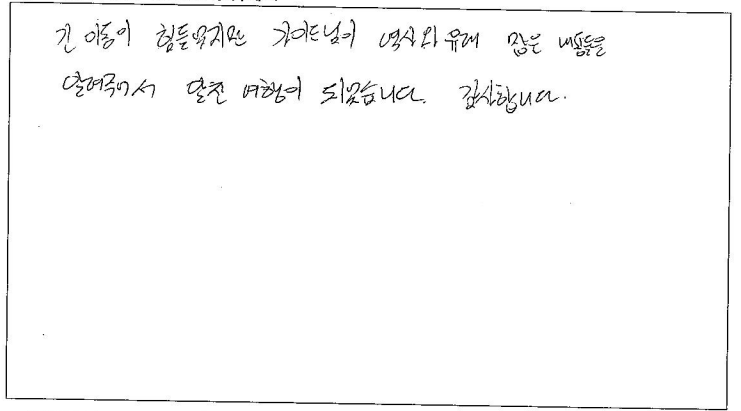 긴 이동이 힘들었지만 가이드님이 역사와 유래 많은 내용들을
알려줘서 알찬 여행이 되었습니다. 감사합니다.